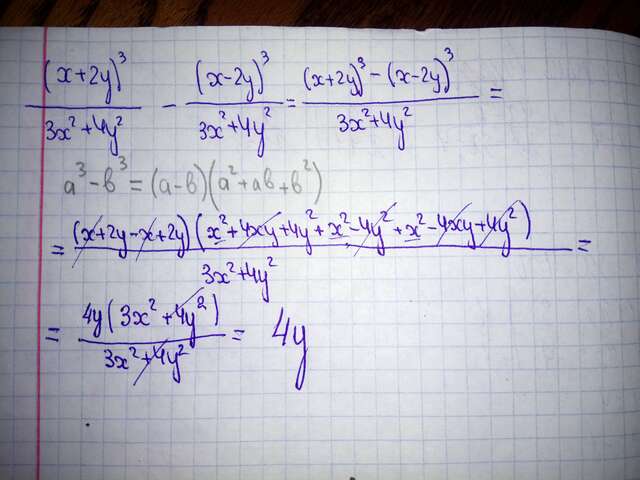 (x+2y)³/3x²+4y² - (x-2y)³/3x²+4y² = (x+2y)³-(x-2y)³/3x²+4y² =
a³-b³=(a-b)(a²+ab+b²)
= (x+2y-x+2y)(x²+4xy+4y²+x²-4y²+x²-4xy+4y²)/3x²+4y² =
= 4y(3x²+4y²)/3x²+4y² = 4y